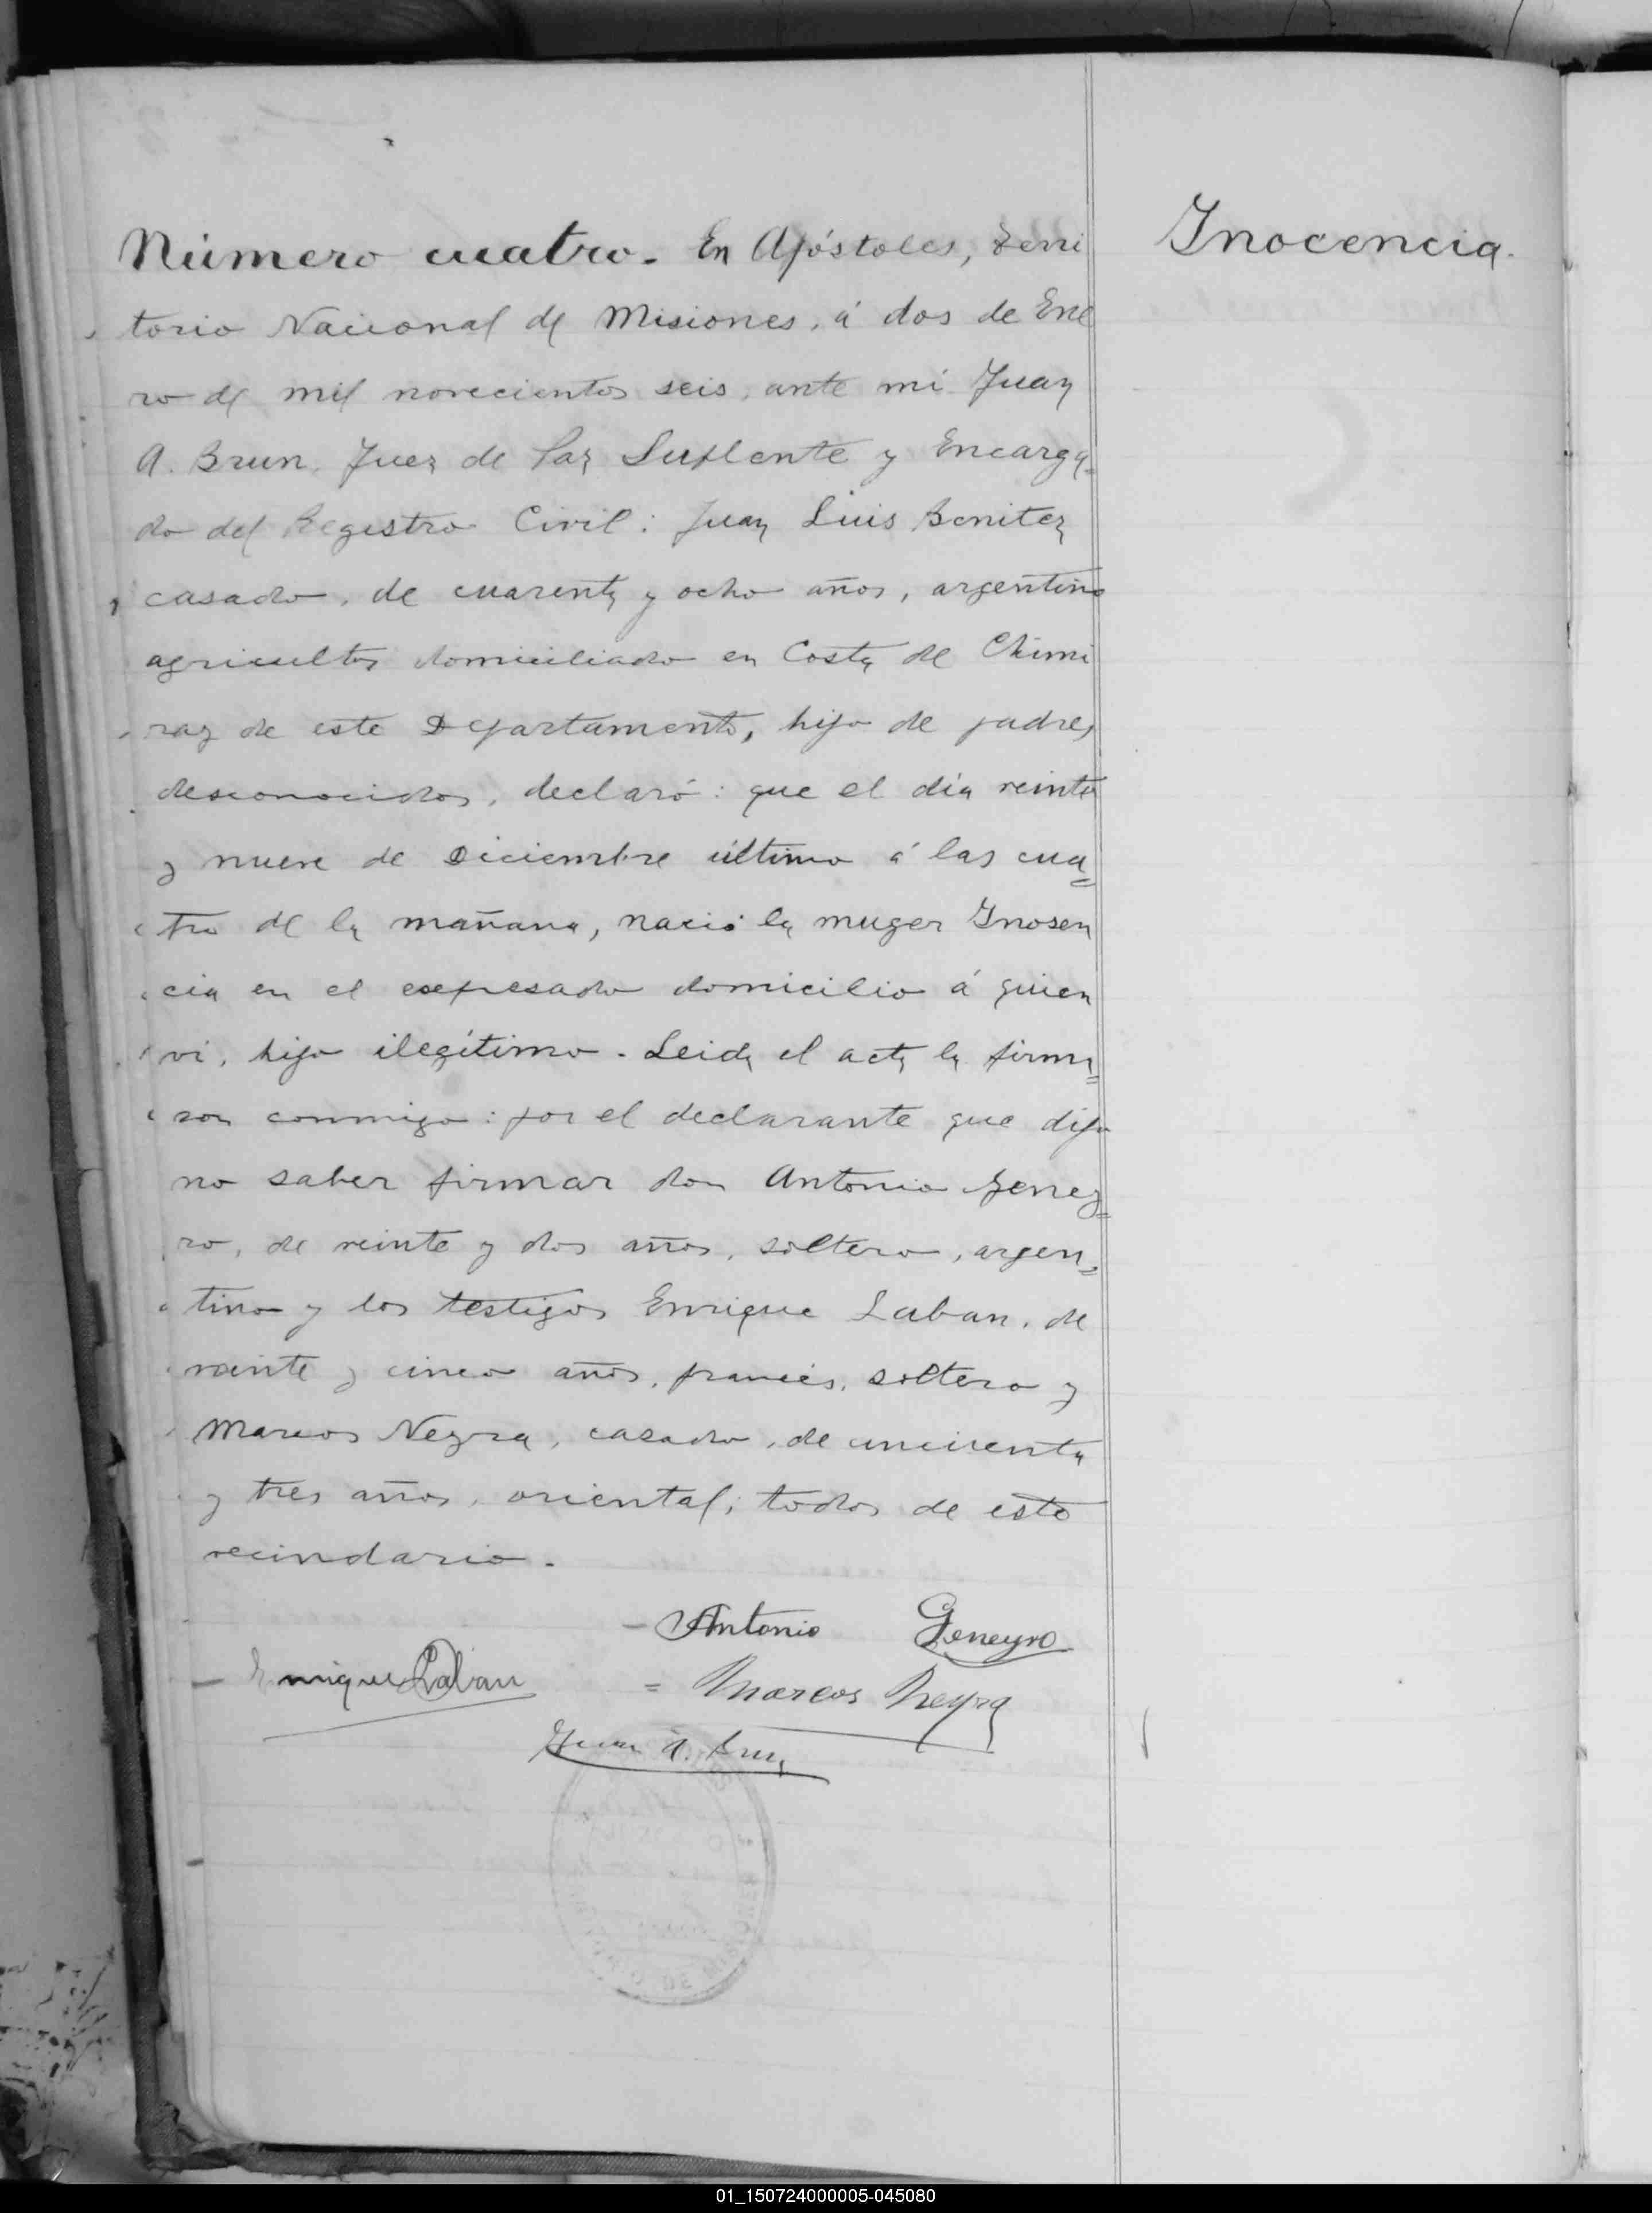 Número cuatro. En Apóstoles, Terri
torio Nacional de Misiones, á dos de Ene
ro de mil novecientos seis, ante mi Juan
A. Brun, Juez de Paz Suplente y Encarga=
do del Registro Civil: Juan Luis Benitez
casado, de cuarenta y ocho años, argentino
agricultor domiciliado en Costa de Chimi
ray de este Departamento, hijo de padres
desconocidos, declaró: que el dia veinte
y nueve de Diciembre último á las cua=
tro de la mañana, nació la muger Inosen
cia en el expresado domicilio á quien
vi, hijo ilegítimo. Leida el acta la firma=
ron conmigo: por el declarante que dijo
no saber firmar don Antonio Geney=
ro, de veinte y dos años, soltero, argen=
tino y los testigos Enrique Laban, de
veinte y cinco años, francés, soltero y
Marcos Neyra, casado, de cincuenta
y tres años, oriental; todos de este
vecindario.
Antonio Geneyro
Enrique Laban = Marcos Neyra
Juan A. Brun
DE MISIONES
Inocencia.
01_150724000005-045080